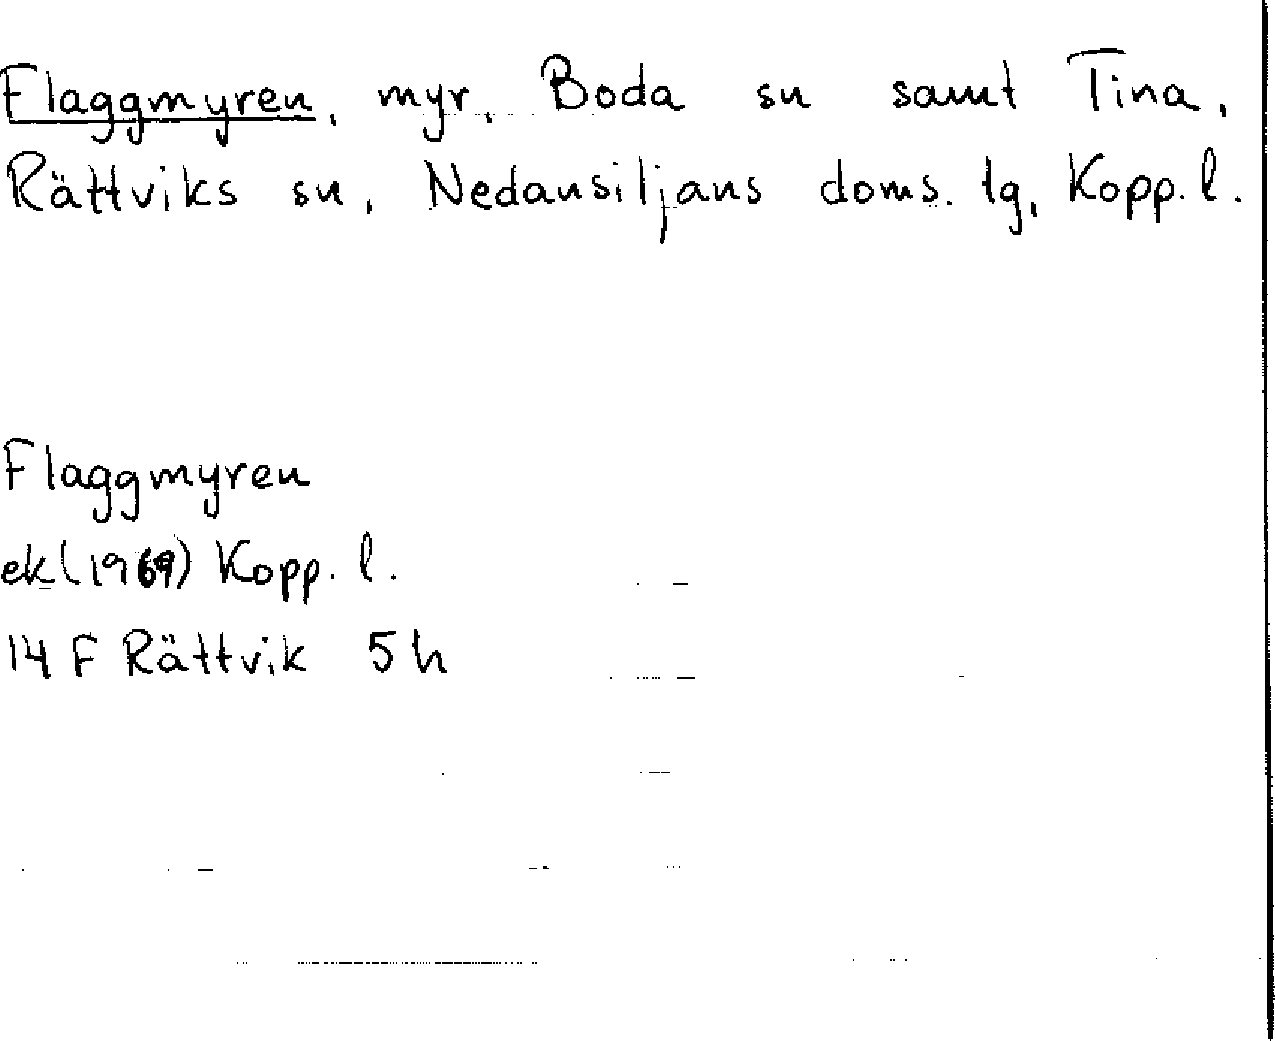 Flaggmyren, myr, Boda sn samt Tina,
Rättviks sn, Nedansiljans doms. lg, Kopp. l.
Flaggmyren
ek (1969) Kopp. l.
14 F Rättvik 5 h